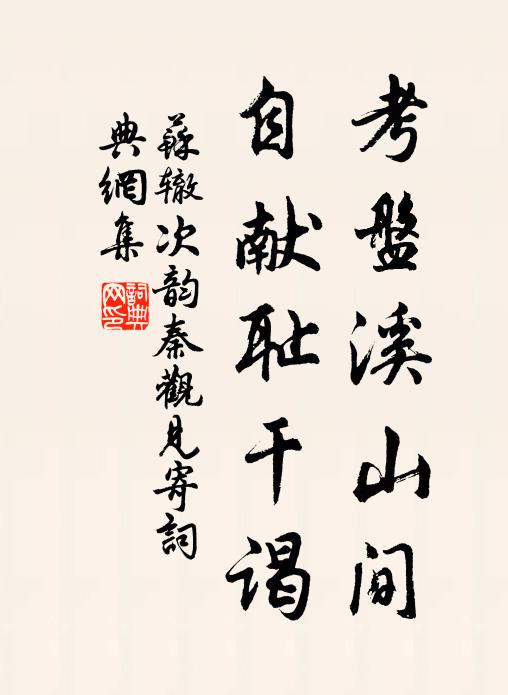 考盤溪山间
自献耻干谒
蘇辙次韵秦觀見寄詞
典網集
詞典
网印